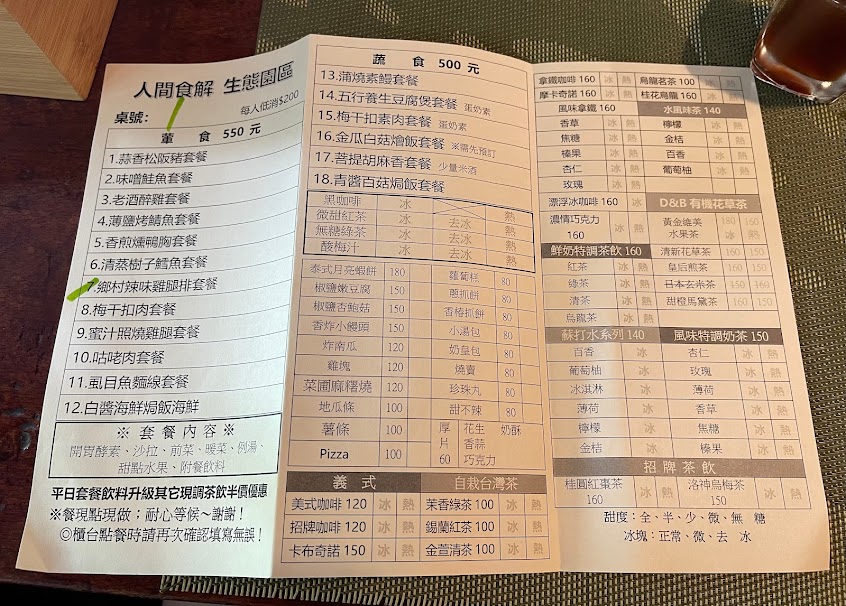 人間食解 生態園區
每人低消$200
桌號:
葷 食 550 元
1.蒜香松阪豬套餐
2.味噌鮭魚套餐
3.老酒醉雞套餐
4.薄鹽烤鯖魚套餐
5.香煎燻鴨胸套餐
6.清蒸樹子鱈魚套餐
7.鄉村辣味雞腿排套餐
8.梅干扣肉套餐
9.蜜汁照燒雞腿套餐
10.咕咾肉套餐
11.虱目魚麵線套餐
12.白醬海鮮焗飯海鮮
※ 套 餐 內 容 ※
開胃酵素、沙拉、前菜、暖菜、例湯、
甜點水果、附餐飲料
平日套餐飲料升級其它現調茶飲半價優惠
※餐現點現做；耐心等候～謝謝！
◎櫃台點餐時請再次確認填寫無誤！
蔬 食 500 元
13.蒲燒素鰻套餐
14.五行養生豆腐煲套餐 蛋奶素
15.梅干扣素肉套餐 蛋奶素
16.金瓜白菇燴飯套餐 ※需先預訂
17.菩提胡麻香套餐 少量米酒
18.青醬百菇焗飯套餐
黑咖啡 冰 熱
微甜紅茶 冰 去冰 熱
無糖綠茶 冰 去冰 熱
酸梅汁 冰 去冰 熱
泰式月亮蝦餅 180 蘿蔔糕 80
椒鹽嫩豆腐 150 蔥抓餅 80
椒鹽杏鮑菇 150 香椿抓餅 80
香炸小饅頭 150 小湯包 80
炸南瓜 120 奶皇包 80
雞塊 120 燒賣 80
菜圃麻糬燒 120 珍珠丸 80
地瓜條 100 甜不辣 80
薯條 100 厚片 60 花生 奶酥
香蒜
Pizza 100 巧克力
義 式 自栽台灣茶
美式咖啡 120 冰 熱 茉香綠茶 100 冰 熱
招牌咖啡 120 冰 熱 錫蘭紅茶 100 冰 熱
卡布奇諾 150 冰 熱 金萱清茶 100 冰 熱
拿鐵咖啡 160 冰 熱 烏龍茗茶 100 冰 熱
摩卡奇諾 160 冰 熱 桂花烏龍 160 冰 熱
風味拿鐵 160 水風味茶 140
香草 冰 熱 檸檬 冰 熱
焦糖 冰 熱 金桔 冰 熱
榛果 冰 熱 百香 冰 熱
杏仁 冰 熱 葡萄柚 冰 熱
玫瑰 冰 熱
漂浮冰咖啡 160 冰 D&B 有機花草茶
濃情巧克力 160 冰 熱 黃金維美水果茶 180 160 冰 熱
鮮奶特調茶飲 160 清新花草茶 160 150
紅茶 冰 熱 皇后煎茶 160 150
綠茶 冰 熱 日本玄米茶 150 150
清茶 冰 熱 甜橙馬黛茶 160 150
烏龍茶 冰 熱
蘇打水系列 140 風味特調奶茶 150
百香 冰 杏仁 冰 熱
葡萄柚 冰 玫瑰 冰 熱
冰淇淋 冰 薄荷 冰 熱
薄荷 冰 香草 冰 熱
檸檬 冰 焦糖 冰 熱
金桔 冰 榛果 冰 熱
招 牌 茶 飲
桂圓紅棗茶 160 冰 熱 洛神烏梅茶 150 冰 熱
甜度：全、半、少、微、無 糖
冰塊：正常、微、去 冰